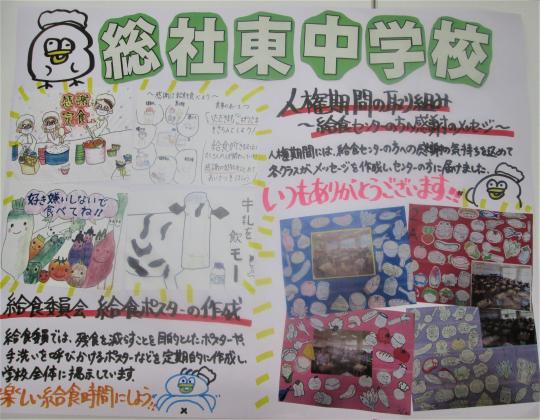 総社東中学校
感謝
完食
～感謝して給食を食べよう～
食事のあいさつ
いただきます
ごちそうさま
をきちんとしよう!
好き嫌いしないで
食べてね!!
牛乳を
飲モー
給食委員会 給食ポスターの作成
給食委員では、残食を減らすことを目的としたポスターや、
手洗いを呼びかけるポスターなどを定期的に作成し、
学校全体に掲示しています。
楽しい給食時間にしよう!!
人権期間の取り組み
～給食センターの方へ感謝のメッセージ～
人権期間には、給食センターの方への感謝の気持ちを込めて
各クラスが、メッセージを作成し、センターの方に届けました。
いつもありがとうございます!!